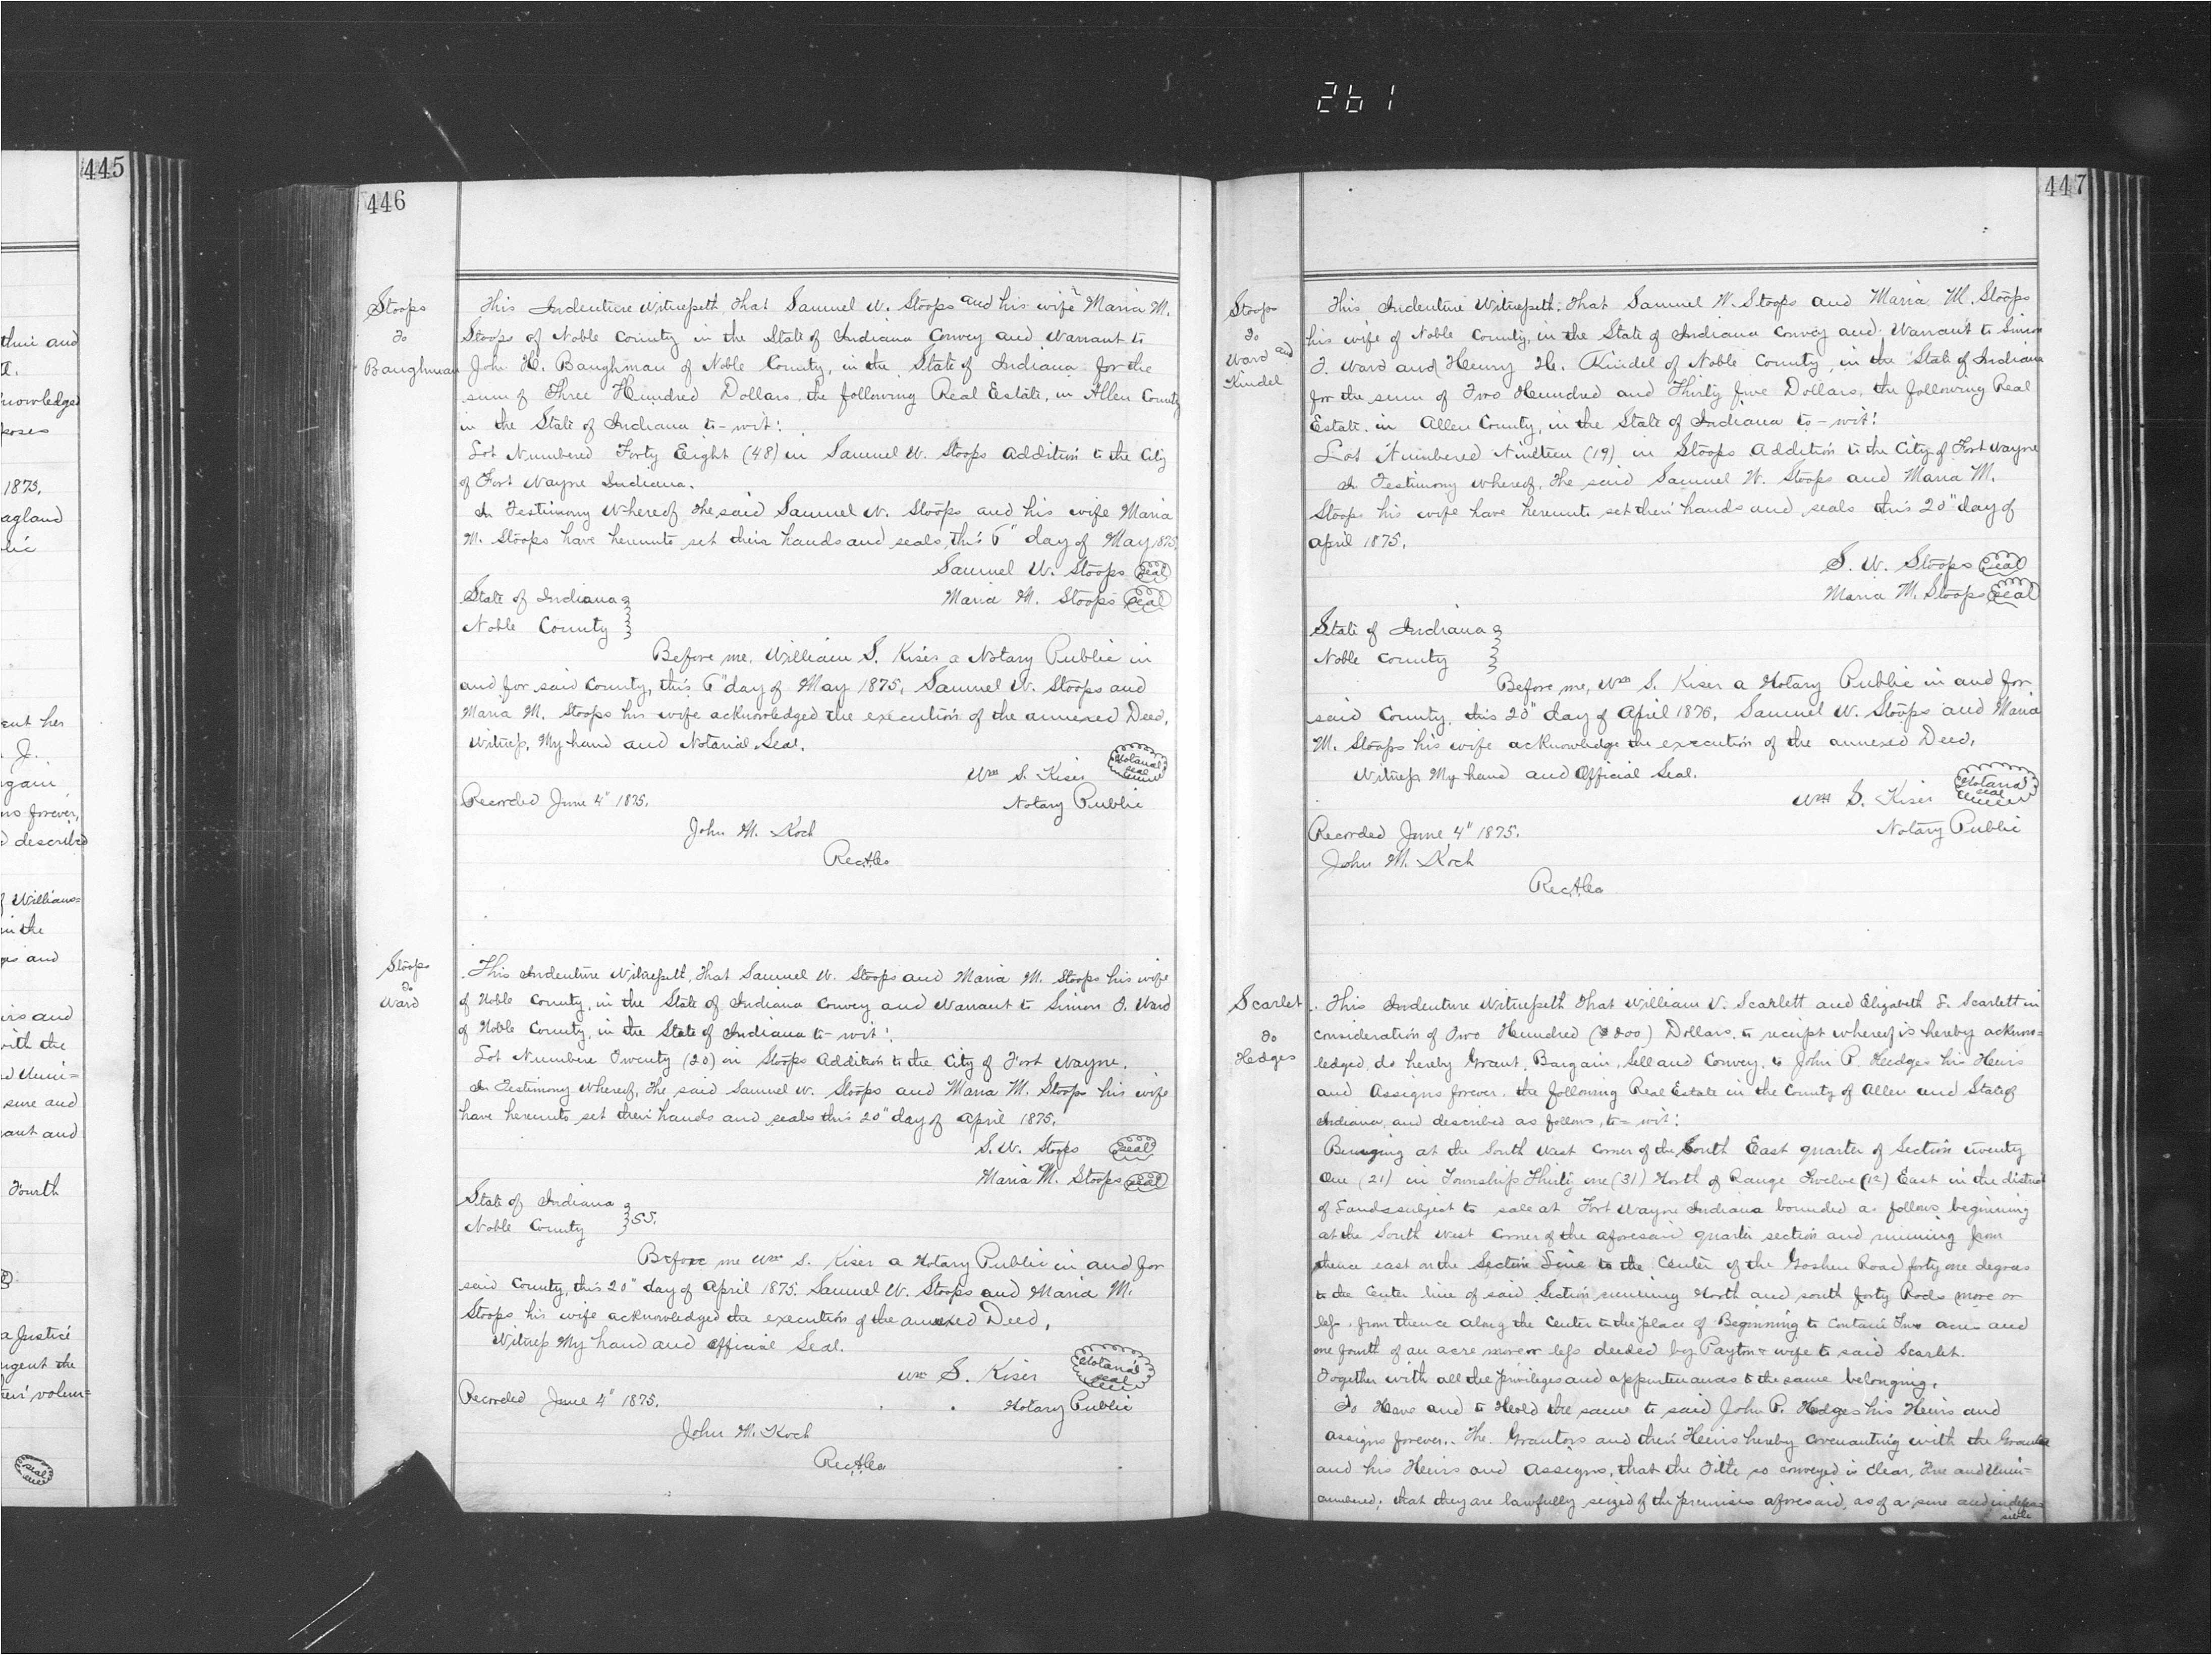 261
445
thin and
nowledged
poses
1873.
agland
lic
ent her
J.
rgain
ns forever,
d described
f Williams=
in the
ps and
irs and
with the
d Unin=
sure and
ant and
Fourth
a Justice
urgent the
their volun=
seal
446
Stoops
to
Baughman
This Indenture Witnesseth, that Samuel W. Stoops and his wife Maria M.
Stoops of Noble County in the State of Indiana Convey and Warrant to
John H. Baughman of Noble County, in the State of Indiana for the
sum of Three Hundred Dollars, the following Real Estate, in Allen County
in the State of Indiana to-wit:
Lot Numbered Forty Eight (48) in Samuel W. Stoops Addition to the City
of Fort Wayne Indiana.
In Testimony Whereof, the said Samuel W. Stoops and his wife Maria
M. Stoops have hereunto set their hands and seals, this 6" day of May 1875,
Samuel W. Stoops Seal
Maria M. Stoops Seal
State of Indiana
Noble County
Before me, William S. Kiser a Notary Public in
and for said County, this 6" day of May 1875, Samuel W. Stoops and
Maria M. Stoops his wife acknowledged the execution of the annexed Deed,
Witness, My hand and Notarial Seal.
Wm S. Kiser Notarial seal
Notary Public
Recorded June 4" 1875.
John M. Koch
Rec. A. Co
Stoops
to
Ward
This Indenture Witnesseth, that Samuel W. Stoops and Maria M. Stoops his wife
of Noble County, in the State of Indiana Convey and Warrant to Simon J. Ward
of Noble County, in the State of Indiana to-wit:
Lot Numbere Twenty (20) in Stoops Addition to the City of Fort Wayne.
In Testimony Whereof, the said Samuel W. Stoops and Maria M. Stoops his wife
have hereunto set their hands and seals this 20" day of April 1875.
S. W. Stoops Seal
Maria M. Stoops Seal
State of Indiana
Noble County SS.
Before me Wm S. Kiser a Notary Public in and for
said County, this 20" day of April 1875. Samuel W. Stoops and Maria M.
Stoops his wife acknowledged the execution of the annexed Deed,
Witness My hand and official Seal.
Wm S. Kiser Notarial seal
Notary Public
Recorded June 4" 1875.
John M. Koch
Rec. A. Co
447
Stoops
to
Ward and
Kindel
This Indenture Witnesseth: that Samuel W. Stoops and Maria M. Stoops
his wife of Noble County, in the State of Indiana Convey and Warrant to Simon
J. Ward and Henry H. Kindel of Noble County, in the State of Indiana
for the sum of Two Hundred and Thirty five Dollars, the following Real
Estate in Allen County, in the State of Indiana to-wit:
Lot Numbered Nineteen (19) in Stoops Addition to the City of Fort Wayne
In Testimony whereof, the said Samuel W. Stoops and Maria M.
Stoops his wife have hereunto set their hands and seals this 20" day of
April 1875.
S. W. Stoops Seal
Maria M. Stoops Seal
State of Indiana
Noble County
Before me, Wm S. Kiser a Notary Public in and for
said County, this 20" day of April 1876, Samuel W. Stoops and Maria
M. Stoops his wife acknowledge the execution of the annexed Deed,
Witness My hand and Official Seal.
Wm S. Kiser Notarial seal
Notary Public
Recorded June 4" 1875.
John M. Koch
Rec. A. Co
Scarlet
to
Hedges
This Indenture Witnesseth that William V. Scarlett and Elizabeth S. Scarlett in
consideration of Two Hundred ($200) Dollars, to receipt whereof is hereby acknow=
ledged, do hereby Grant, Bargain, Sell and Convey, to John P. Hedges his Heirs
and Assigns forever, the following Real Estate in the County of Allen and State of
Indiana, and described as follows, to-wit:
Beginning at the South West Corner of the South East quarter of Section twenty
One (21) in Township Thirty one (31) North of Range Twelve (12) East in the district
of Lands subject to sale at Fort Wayne Indiana bounded as follows, beginning
at the South West Corner of the aforesaid quarter section and running from
thence east on the Section Line to the Center of the Goshen Road forty one degrees
to the Center line of said Section running North and south forty Rods more or
less. from thence along the Center to the place of Beginning to Contain Two acres and
one fourth of an acre more or less deeded by Payton & wife to said Scarlet.
Together with all the privileges and appurtenances to the same belonging,
To Have and to Hold the same to said John P. Hedges his Heirs and
assigns forever. The Grantors and their Heirs hereby covenanting with the Grantee
and his Heirs and Assigns, that the Title so conveyed is Clear, Free and Unin=
cumbered; that they are lawfully seized of the premises aforesaid, as of a sure and indefea
sible